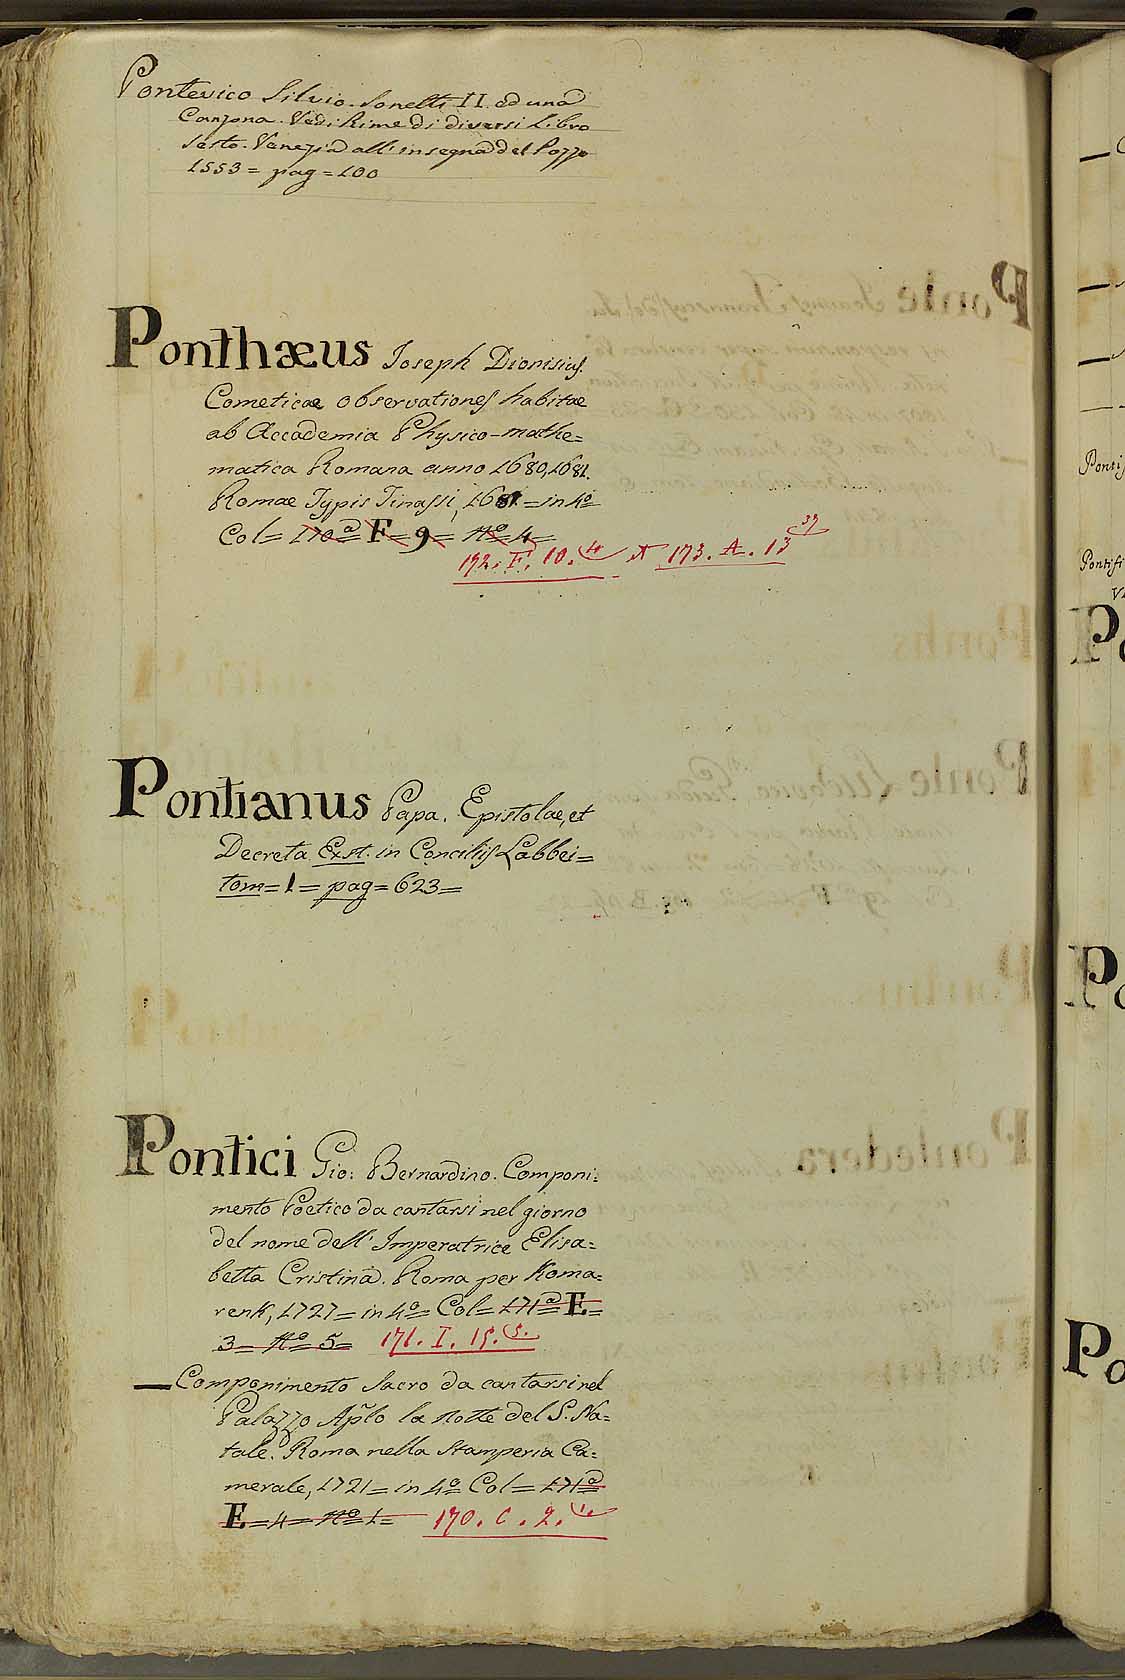 Pontevico Silvio. Sonetti II. ed una
Canzona. Vedi Rime di diversi Libro
sesto. Venezia all' insegna del Pozzo
1553 = pag = 100
Ponthæus Joseph Dionisius.
Cometicae observationes habitae
ab Accademia Physico-mathe=
matica Romana anno 1680, 1681.
Romae Typis Tinassi, 1681 = in 4º
Col = 170ª F = 9 = Nº 4 =
192. F. 10. 4 A 173. A. 13 39
Pontianus Papa. Epistolae, et
Decreta Exst. in Conciliis Labbei =
tom = 1 = pag = 623 =
Pontici Gio: Bernardino. Componi=
mento Poetico da cantarsi nel giorno
del nome dell' Imperatrice Elisa=
betta Cristina. Roma per Koma=
renk, 1727 = in 4º = Col = 171ª E =
3 = Nº 5 = 171. I. 15. 5.
— Componimento Sacro da cantarsi nel
Palazzo Aplo la notte del S. Na=
tale. Roma nella Stamperia Ca=
merale, 1721 = in 4º Col = 171ª
E = 4 = Nº 1 = 170. C. 2. 1.